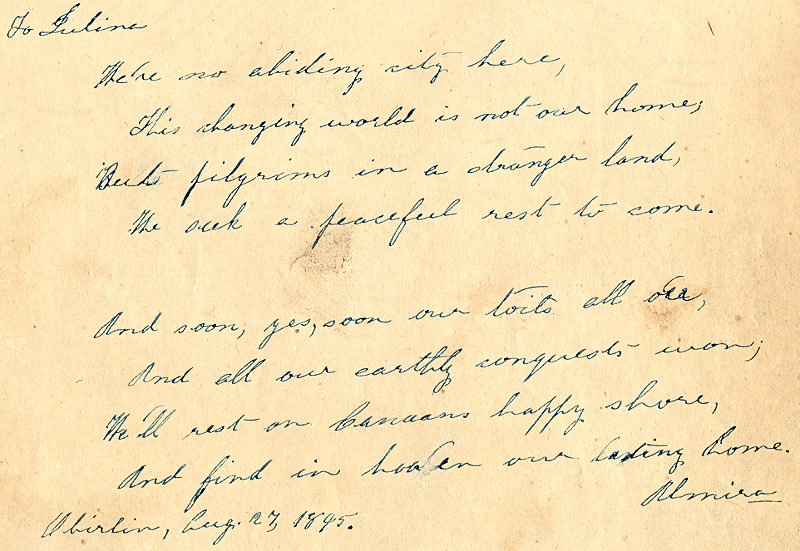 To Julina
We're no abiding city here,
This changing world is not our home;
But pilgrims in a stranger land,
We seek a peaceful rest to come.
And soon, yes, soon our toils all o'er,
And all our earthly conquests won;
We'll rest on Canaans happy shore,
And find in heaven our lasting home.
Almira
Oberlin, Aug. 27, 1895.